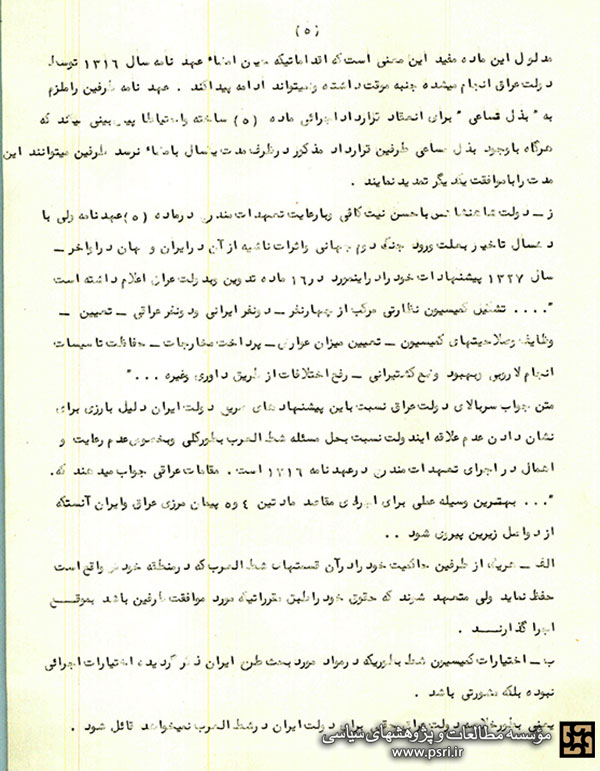 (۵)
مدلول این ماده مفید این معنی است که اقداماتیکه حین امضاء عهد نامه سال ۱۳۱۶ توسط
دولت عراق انجام میشده جنبه موقت داشته و نمیتواند ادامه پیدا کند . عهد نامه طرفین را ملزم
به " بذل مساعی " برای انعقاد قرارداد اجرائی ماده (۵) ساخته و احتیاطا پیش بینی میکند که
هرگاه با وجود بذل مساعی طرفین قرارداد مذکور در ظرف مدت یکسال بامضاء نرسد طرفین میتوانند این
مدت را با موافقت یکدیگر تمدید نمایند .
ز ــ دولت شاهنشاهی با حسن نیت کافی و با رعایت تعهدات مندرج در ماده (۵) عهد نامه ولی با
ده سال تاخیر بعلت ورود جنگ دوم جهانی و اثرات ناشیه از آن در ایران و جهان در اواخر ــ
سال ۱۳۲۷ پیشنهادات خود را در اینمورد در ۱۶ ماده تدوین و بدولت عراق اعلام داشته است
" .... تشکیل کمیسیون نظارتی مرکب از چهار نفر ــ دو نفر ایرانی و دو نفر عراقی ــ تعیین ــ
وظایف و صلاحیتهای کمیسیون ــ تعیین میزان عوارض ــ پرداخت مخارجات ــ حفاظت تاسیسات
انجام لاروبی و بهبود وضع کشتیرانی ــ رفع اختلافات از طریق داوری و غیره ... "
متن جواب سربالای دولت عراق نسبت باین پیشنهادهای دولت ایران دلیل بارزی برای
نشان دادن عدم علاقه ایندولت نسبت بحل مسئله شط العرب بطور کلی و بخصوص عدم رعایت و
اهمال در اجرای تعهدات مندرج در عهد نامه ۱۳۱۶ است . مقامات عراقی جواب میدهند که .
" ... بهترین وسیله عملی برای اجرای مقاصد مادتین ۴ و ۵ پیمان مرزی عراق و ایران آنستکه
از دو اصل زیرین پیروی شود ..
الف ــ هریک از طرفین حاکمیت خود را در آن قسمتهای شط العرب که در منطقه خودش واقع است
حفظ نماید ولی متعهد شوند که حقوق خود را طبق مقرراتیکه مورد موافقت طرفین باشد بموقــع
اجرا گذارنــد .
ب ــ اختیارات کمیسیون شط بطوریکه در مواد مورد بحث طرح ایران ذکر گردیده اختیارات اجرائی
نبوده بلکه مشورتی باشد .
یعنی بطور خلاصه دولت عراق برای دولت ایران در شط العرب نمیخواهد قائل شود .
مؤسسه مطالعات و پژوهشهای سیاسی
www.psri.ir